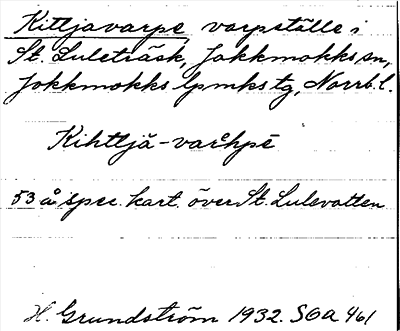 Kittjavarpe varpställe i
St. Luleträsk, Jokkmokks sn,
Jokkmokks lpmks tg, Norrb. l.
Kihttjă-var̊hpē
53 å spec. kart. över St. Lulevatten
H. Grundström 1932. SOA 461